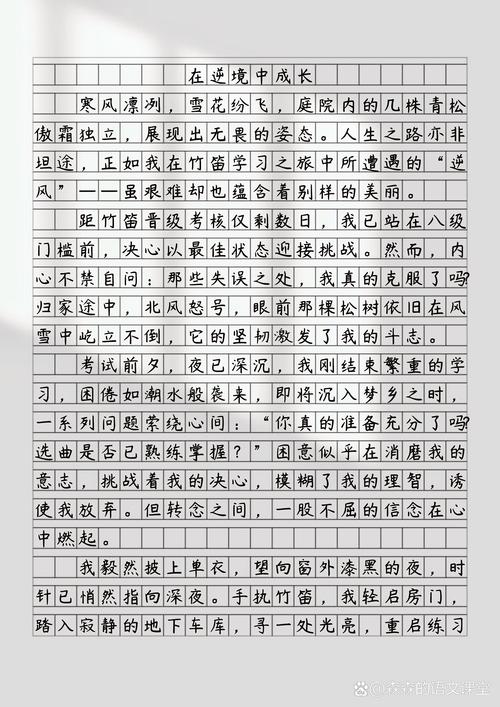 在逆境中成长
寒风凛冽，雪花纷飞，庭院内的几株青松
傲霜独立，展现出无畏的姿态。人生之路亦非
坦途，正如我在竹笛学习之旅中所遭遇的“逆
风”——虽艰难却也蕴含着别样的美丽。
距竹笛晋级考核仅剩数日，我已站在八级
门槛前，决心以最佳状态迎接挑战。然而，内
心不禁自问：那些失误之处，我真的克服了吗？
归家途中，北风怒号，眼前那棵松树依旧在风
雪中屹立不倒，它的坚韧激发了我的斗志。
考试前夕，夜已深沉，我刚结束繁重的学
习，困倦如潮水般袭来，即将沉入梦乡之时，
一系列问题萦绕心间：“你真的准备充分了吗？
选曲是否已熟练掌握？”困意似乎在消磨我的
意志，挑战着我的决心，模糊了我的理智，诱
使我放弃。但转念之间，一股不屈的信念在心
中燃起。
我毅然披上单衣，望向窗外漆黑的夜，时
针已悄然指向深夜。手执竹笛，我轻启房门，
踏入寂静的地下车库，寻一处光亮，重启练习
@森森的语文课堂